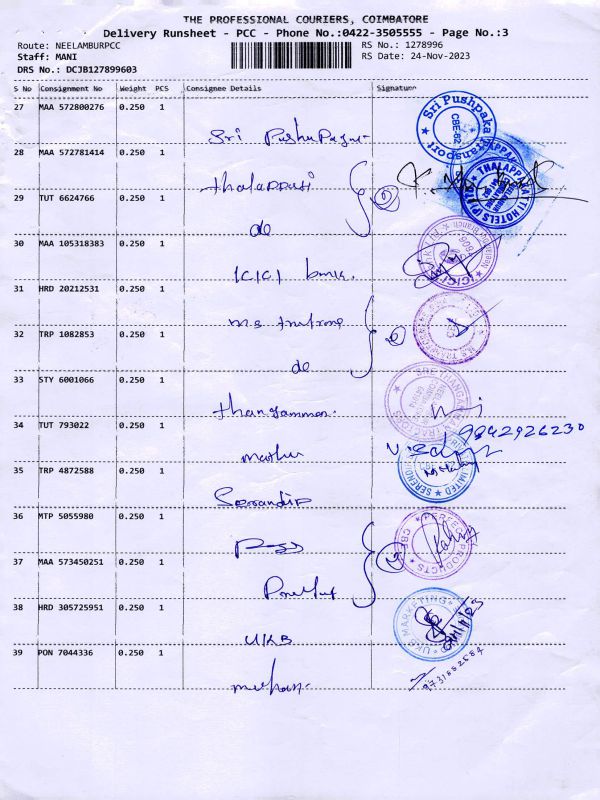 THE PROFESSIONAL COURIERS, COIMBATORE
Delivery Runsheet - PCC - Phone No.:0422-3505555 - Page No.:3
Route: NEELAMBURPCC
RS No.: 1278996
Staff: MANI
RS Date: 24-Nov-2023
DRS No.: DCJB127899603
S No Consignment No Weight PCS Consignee Details Signature
27 MAA 572800276 0.250 1
Sri
Sri Pushpaka transport CBE-62
28 MAA 572781414 0.250 1
thalappasi
THALAPPAKATTI HOTELS (P) LTD
29 TUT 6624766 0.250 1
do
30 MAA 105318383 0.250 1
ICICI bank.
ICICI
31 HRD 20212531 0.250 1
M.S
32 TRP 1082853 0.250 1
do
33 STY 6001066 0.250 1
thangamman.
34 TUT 793022 0.250 1
9842926230
35 TRP 4872588 0.250 1
Serrandip
36 MTP 5055980 0.250 1
PERFECT PRODUCTS CBE
37 MAA 573450251 0.250 1
38 HRD 305725951 0.250 1
UKB
UKB MARKETING
39 PON 7044336 0.250 1
mohan.